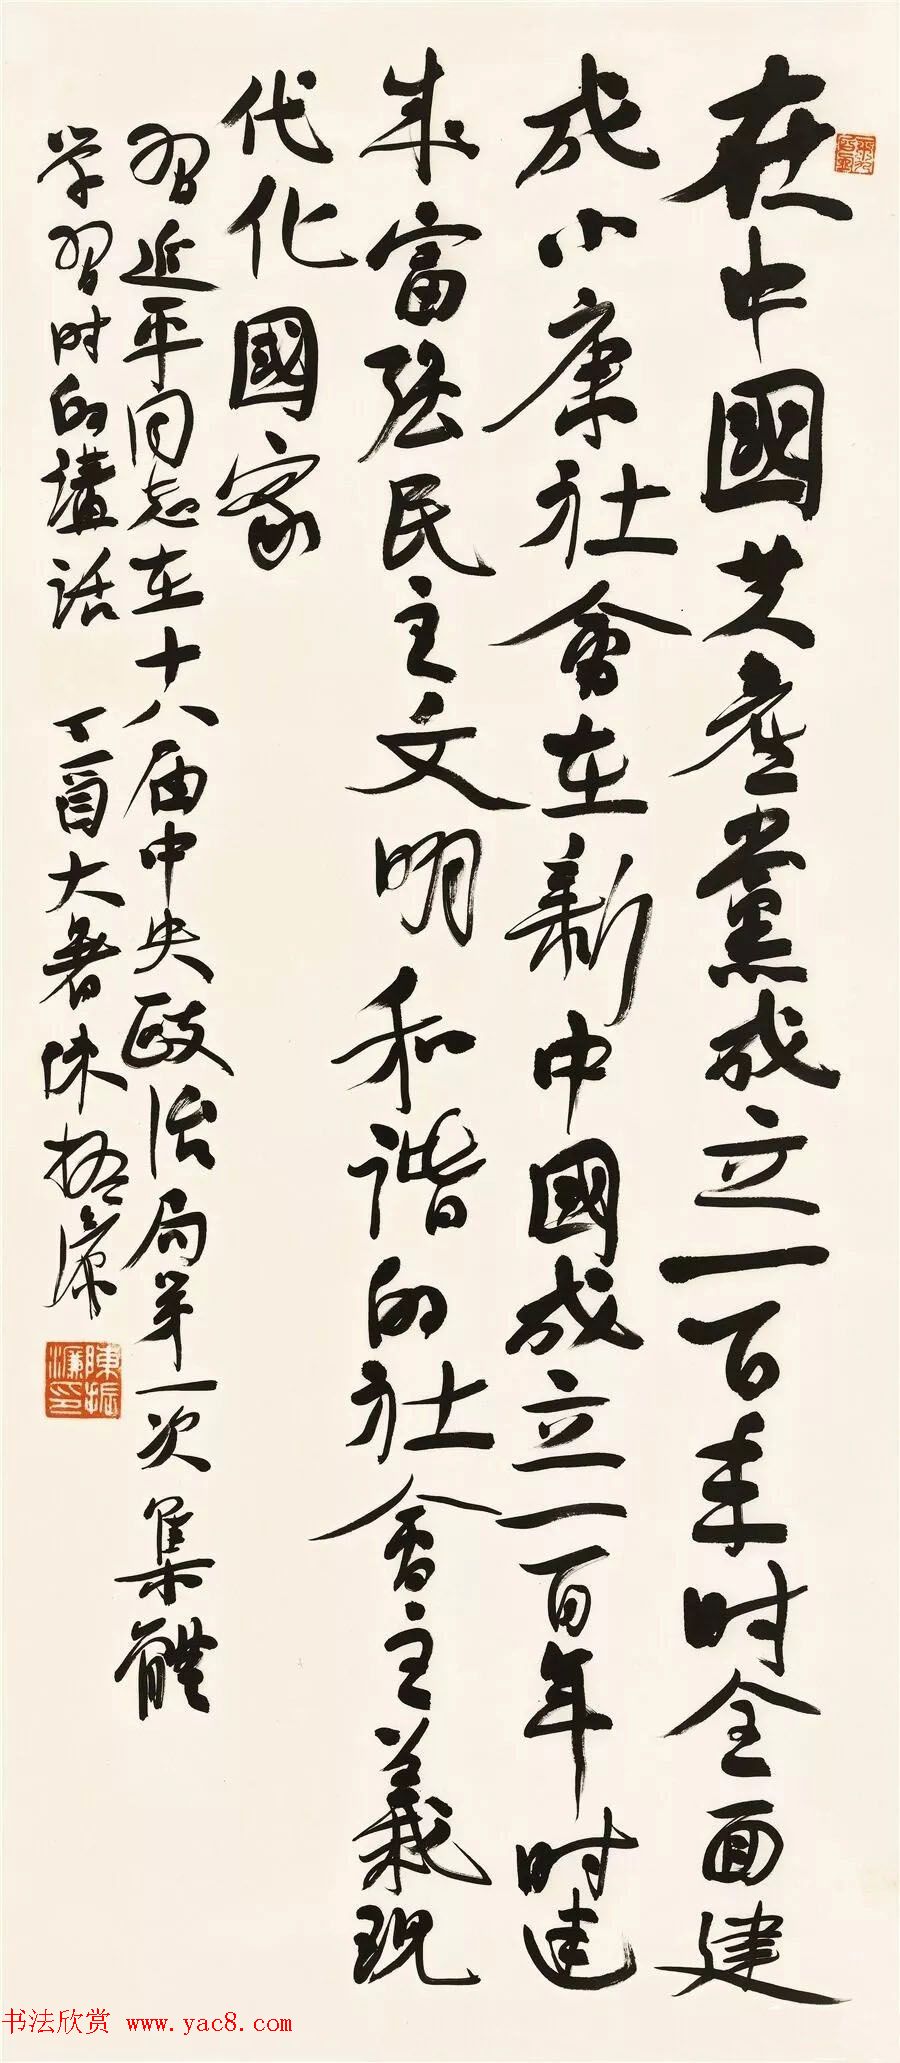 在中國共产黨成立一百年时全面建
成小康社會在新中國成立一百年时建
成富强民主文明和谐的社會主義現
代化國家
习近平同志在十八届中央政治局第一次集體
学习时的講话 丁酉大暑陈振濂
陳振濂印
书法欣赏 www.yac8.com